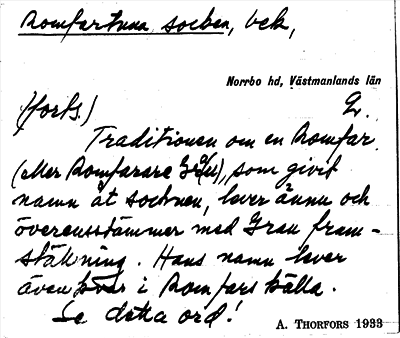 Romfartuna socken, bek,
Norrbo hd, Västmanlands län
(forts.) 2.
Traditionen om en Romfar
(eller Romfarare Grau), som givit
namn åt socknen, lever ännu och
överensstämmer med Grau fram-
ställning. Hans namn lever
även kvar i Romfars källa.
Se detta ord!
A. THORFORS 1933